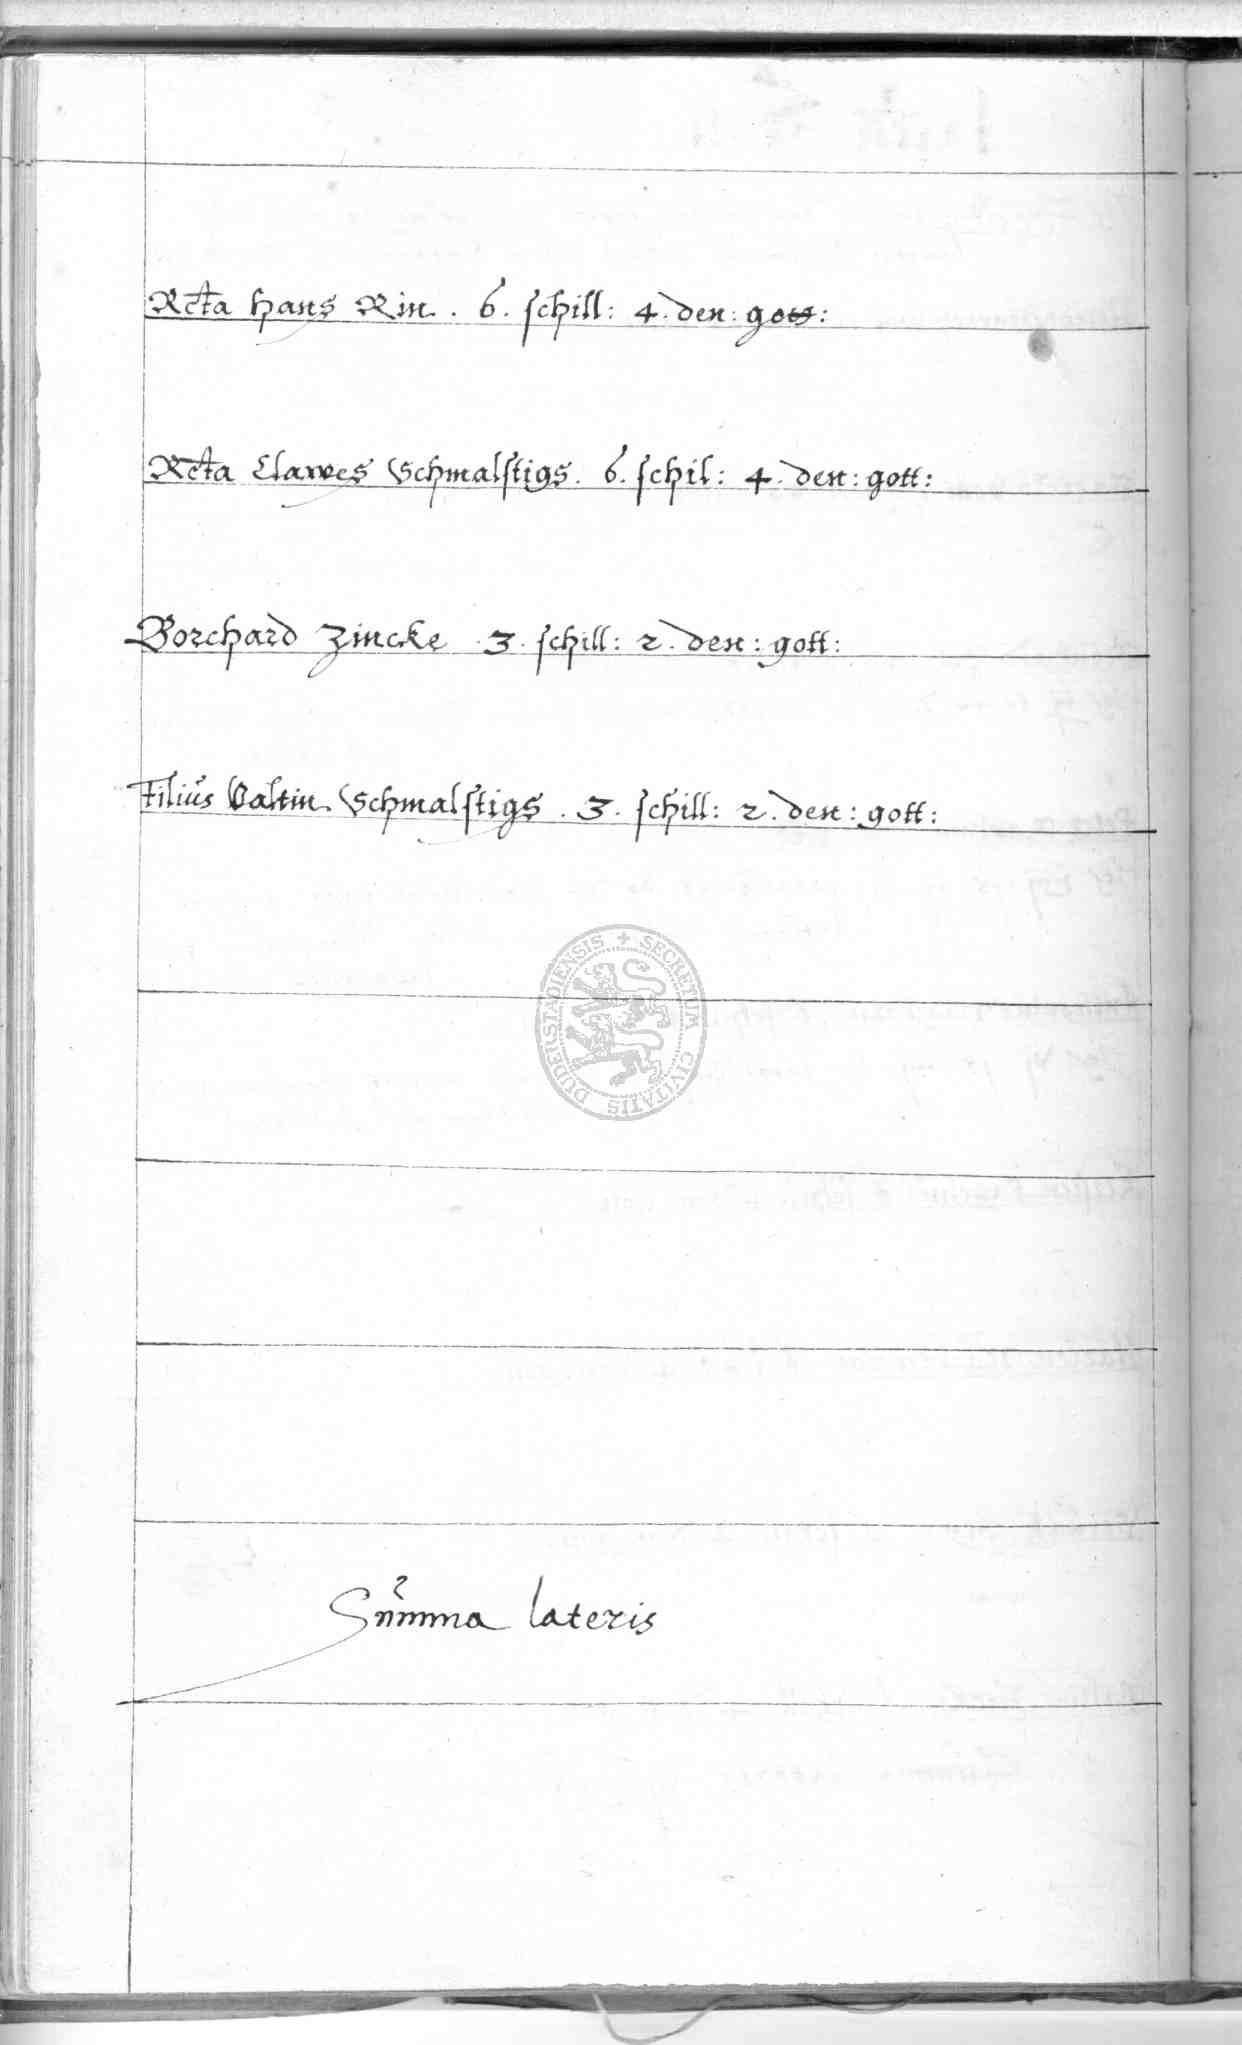 Rcta Hans Rin. 6. schill: 4. den: gott:
Rcta Clawes Schmalstigs. 6. schil: 4. den: gott:
Borchard Zincke 3. schill: 2. den: gott:
Filius Valtin Schmalstigs. 3. schill: 2. den: gott:
SECRETUM CIVITATIS DUDERSTADIENSIS
Summa lateris